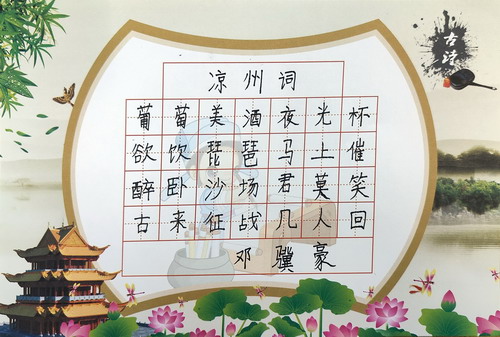 凉州词
葡萄美酒夜光杯
欲饮琵琶马上催
醉卧沙场君莫笑
古来征战几人回
邓骥豪
古诗